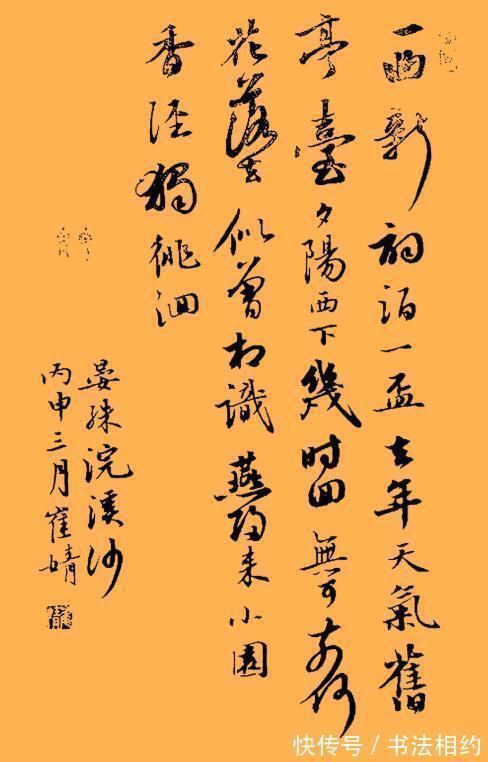 一曲新詞酒一盃去年天氣舊
亭臺夕陽西下幾时回無可奈何
花落去似曾相識燕歸来小園
香徑獨徘徊
晏殊浣溪沙
丙申三月崔婧
快传号 / 书法相约